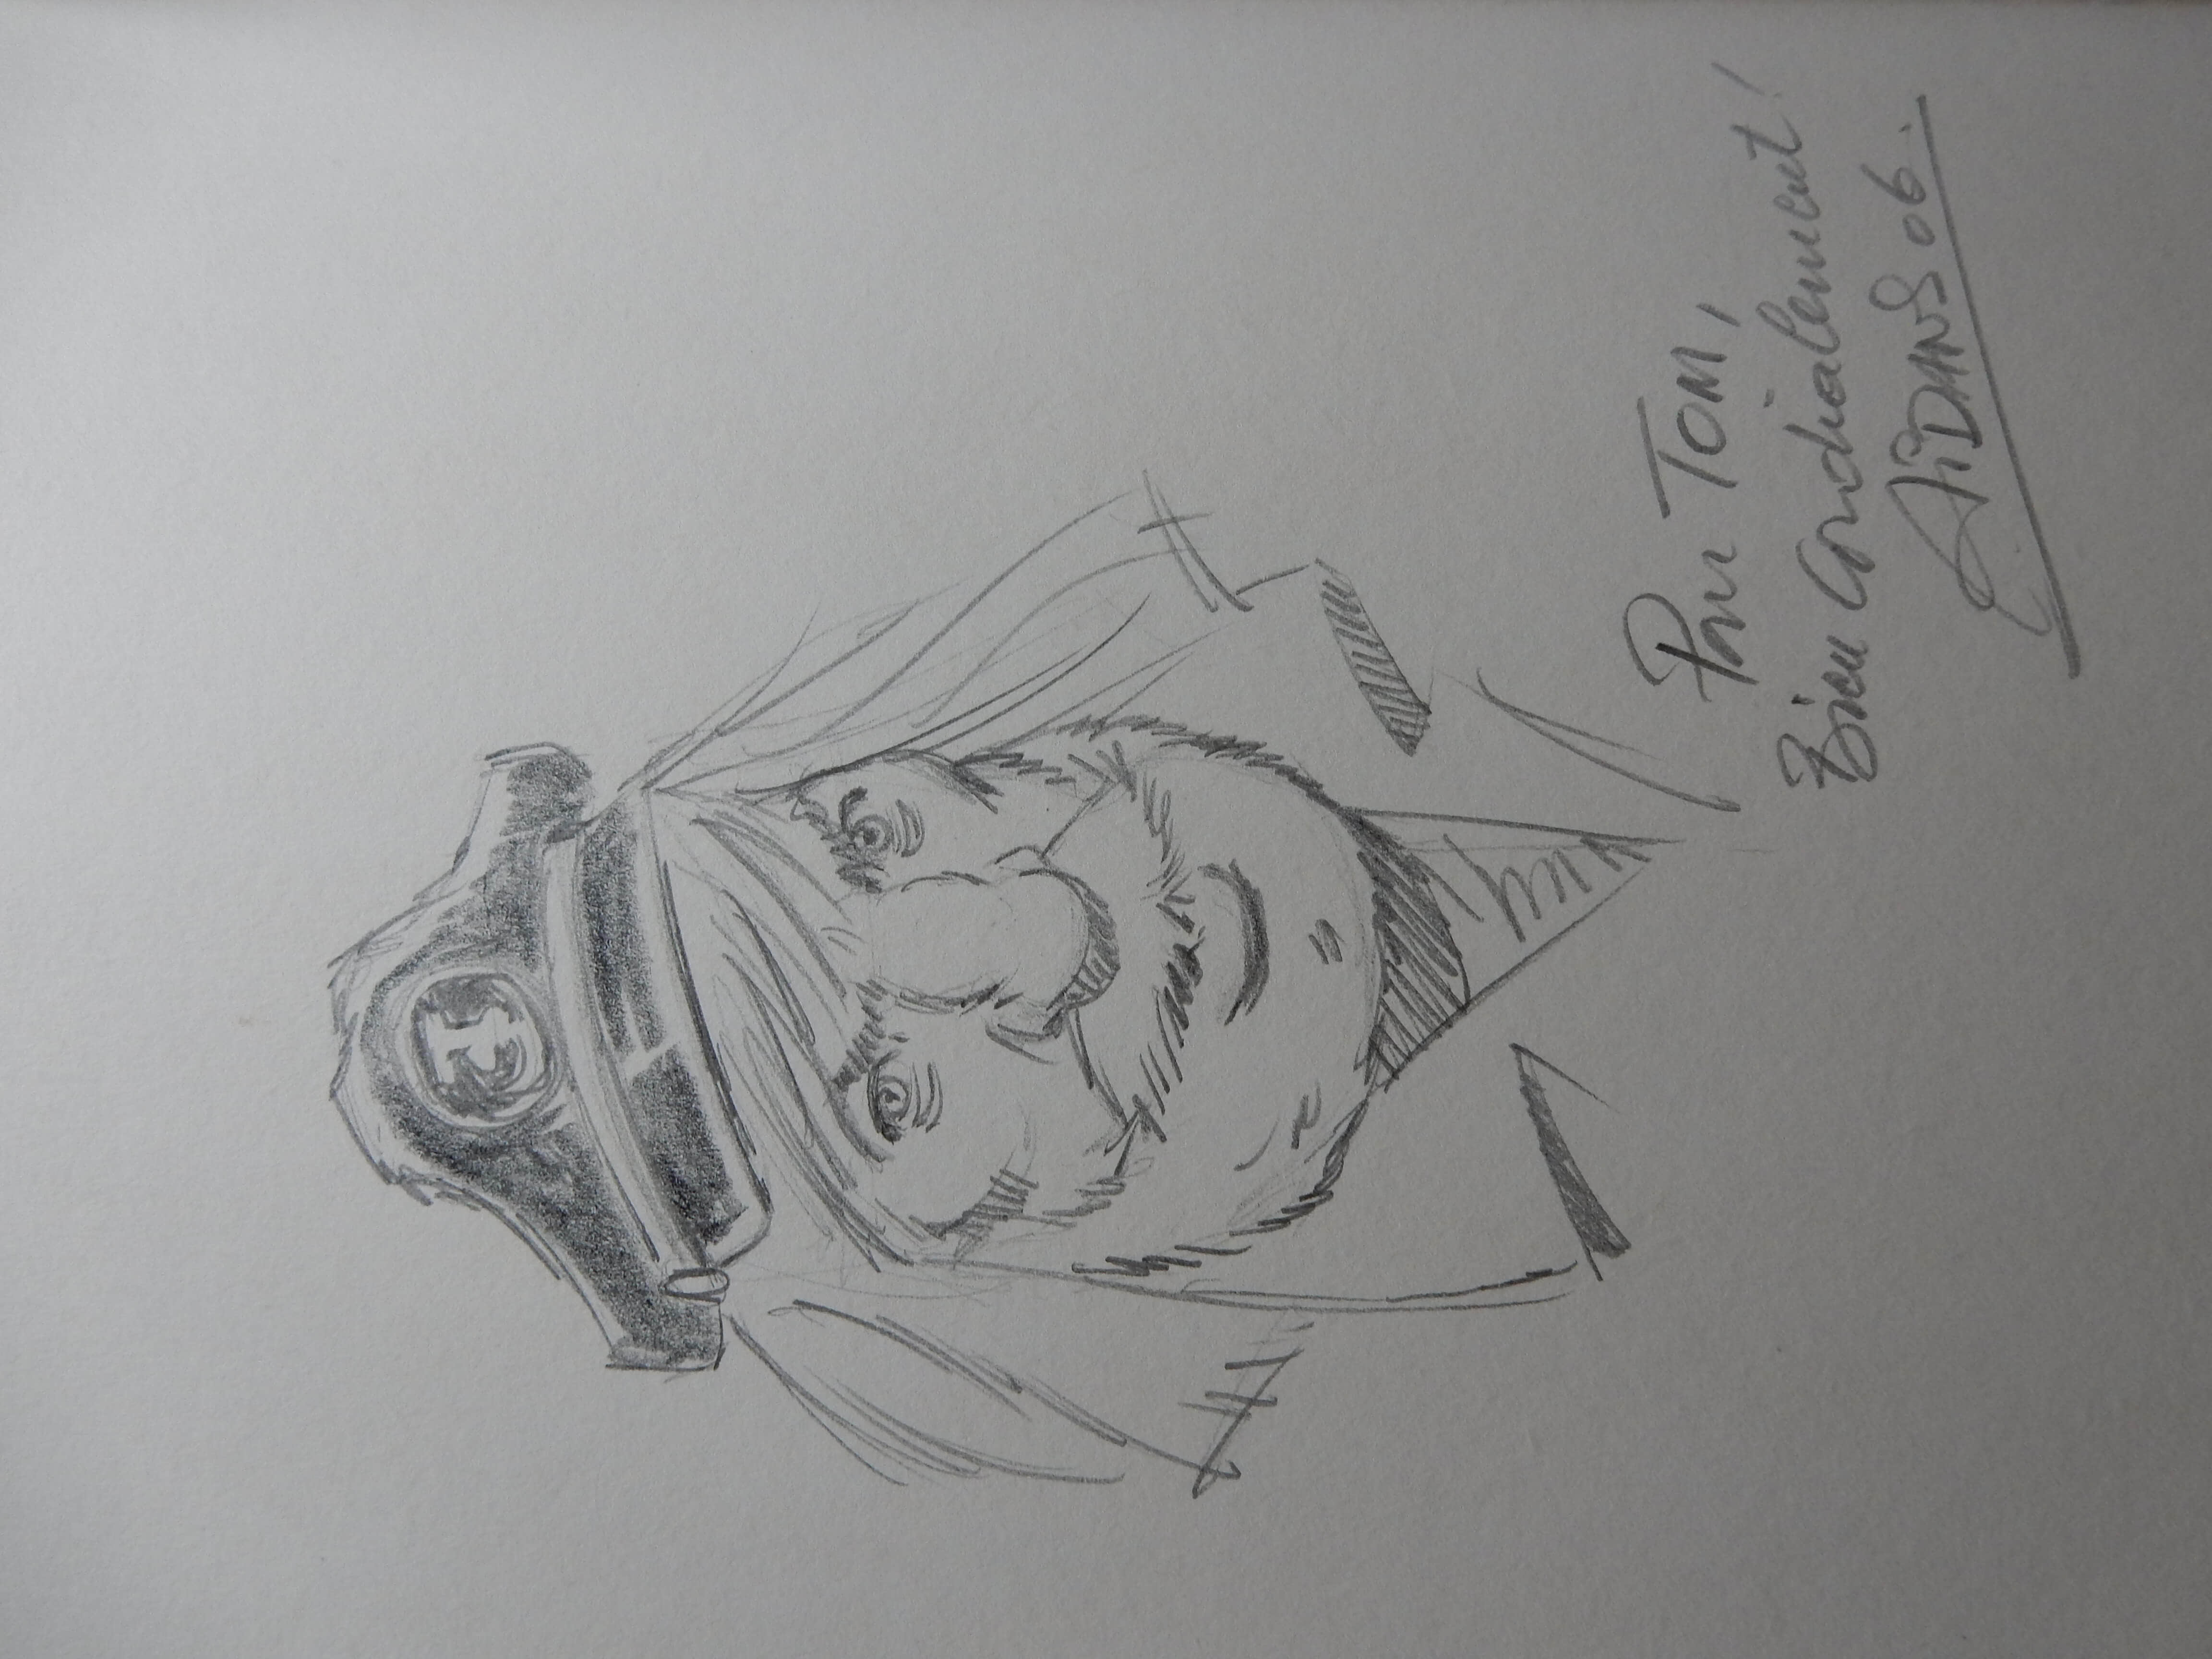 Pour TOM,
Bien Cordialement !
AiDANS 06.